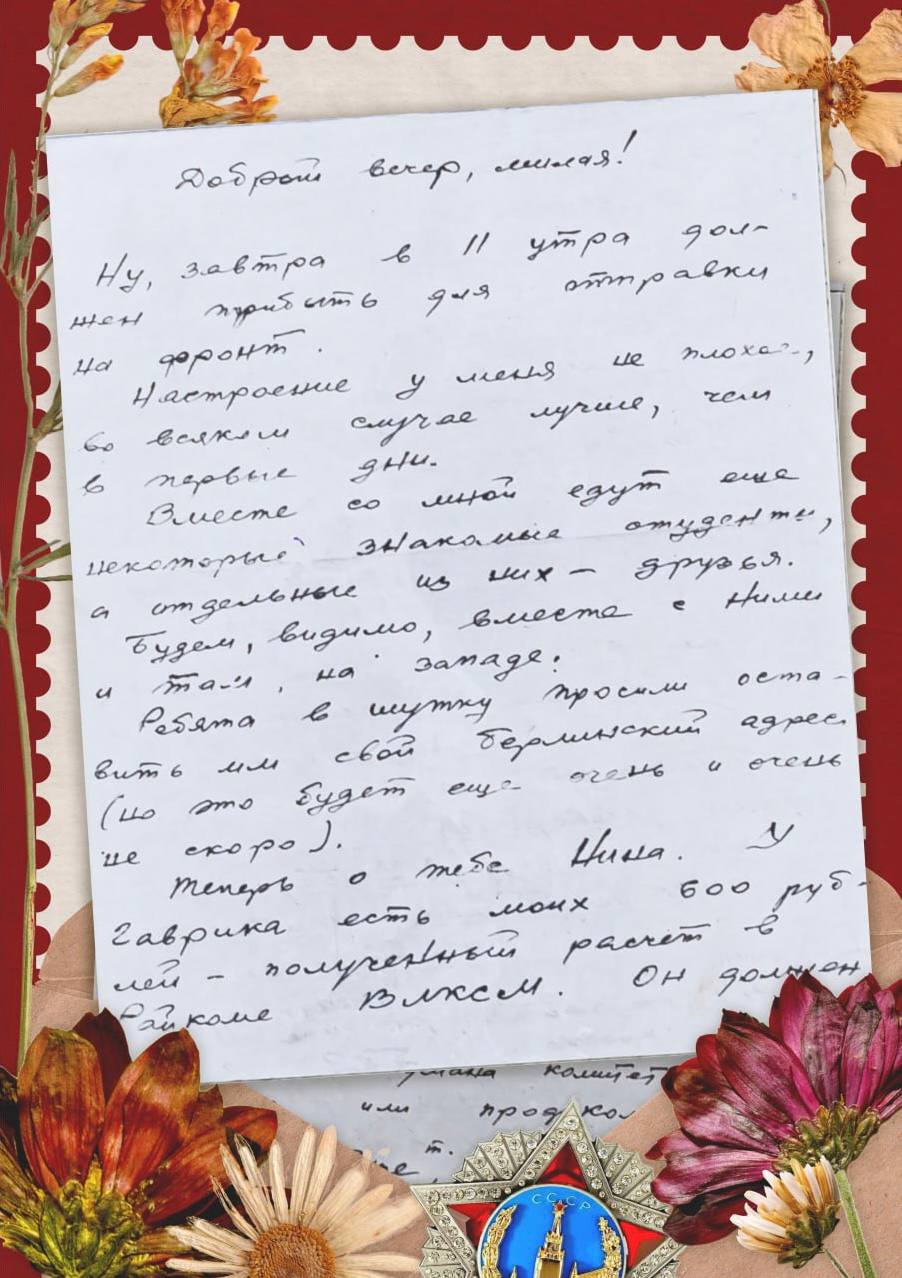 Добрый вечер, милая!
Ну, завтра в 11 утра дол-
жен прибыть для отправки
на фронт.
Настроение у меня не плохое,
во всяком случае лучше, чем
в первые дни.
Вместе со мной едут еще
некоторые знакомые студенты,
а отдельные из них – друзья.
Будем, видимо, вместе с ними
и там, на западе.
Ребята в шутку просили оста-
вить им свой берлинский адрес
(но это будет еще очень и очень
не скоро).
Теперь о тебе Нина. У
Гаврика есть моих 600 руб-
лей – полученный расчет в
Райкоме ВЛКСМ. Он должен
комитет
или
СССР